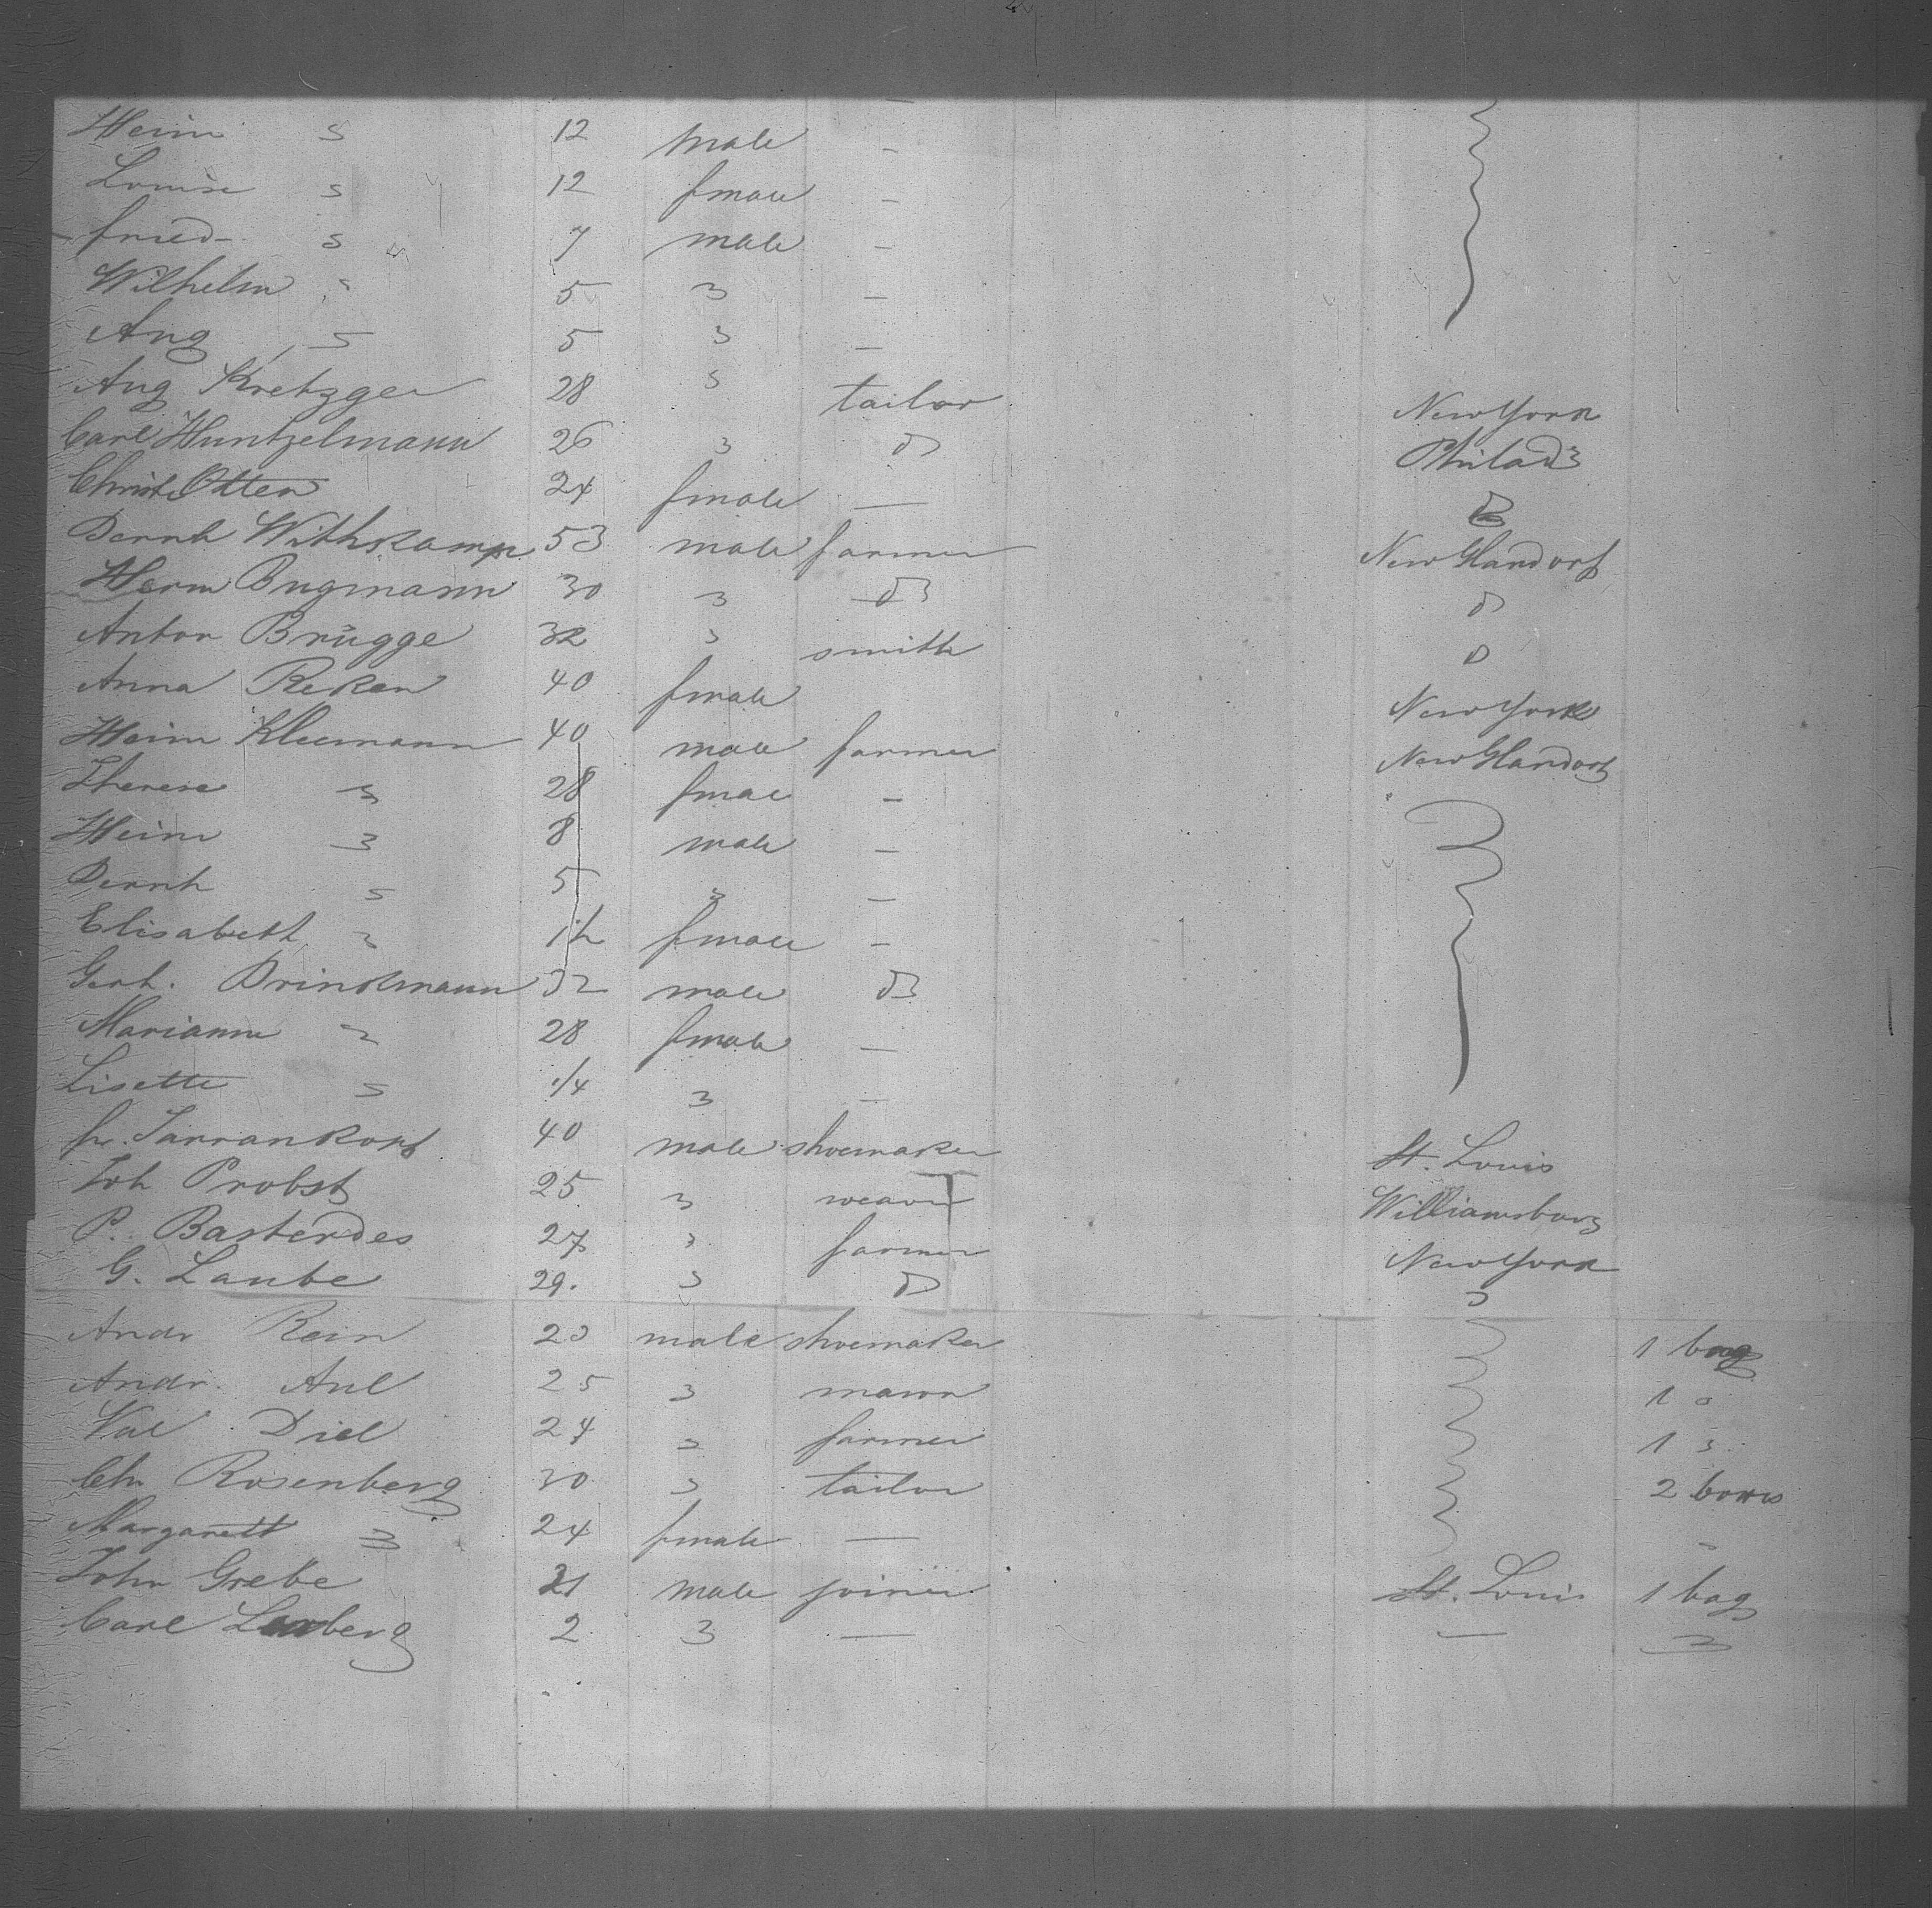 Heinr " 12 male -
Louise " 12 fmale -
Fried " 7 male -
Wilhelm " 5 " -
Aug " 5 " -
Aug Kretzger 28 " tailor New York
Carl Huntzelmann 26 " do Philad"
Christ Otten 24 fmale — do
Bernh Withkamp 53 male farmer New Glandorf
Herm Bugmann 30 " do do
Anton Brügge 32 " smith do
Anna Reken 40 fmale New York
Heinr Kleemann 40 male farmer New Glandorf
Therese " 28 fmale -
Heinr " 8 male -
Bernh " 5 " -
Elisabeth " fmale -
Gerh. Brinkmann 32 male do
Marianne " 28 fmale —
Lisette " 1/4 " -
fr. 40 male shoemaker St. Louis
Joh Probst 25 " weaver Williamsburg
P. Basterdes 27 " farmer New York
G. Laube 29. " do "
Andr Rein 20 male shoemaker 1 bag
Andr. Aul 25 " mason 1 "
Val Diel 24 " farmer 1 "
Chr Rosenberg 30 " tailor 2 boxes
Margareth " 24 fmale — "
John Grebe 21 male joiner St. Louis 1 bag
Carl 2 " — — "